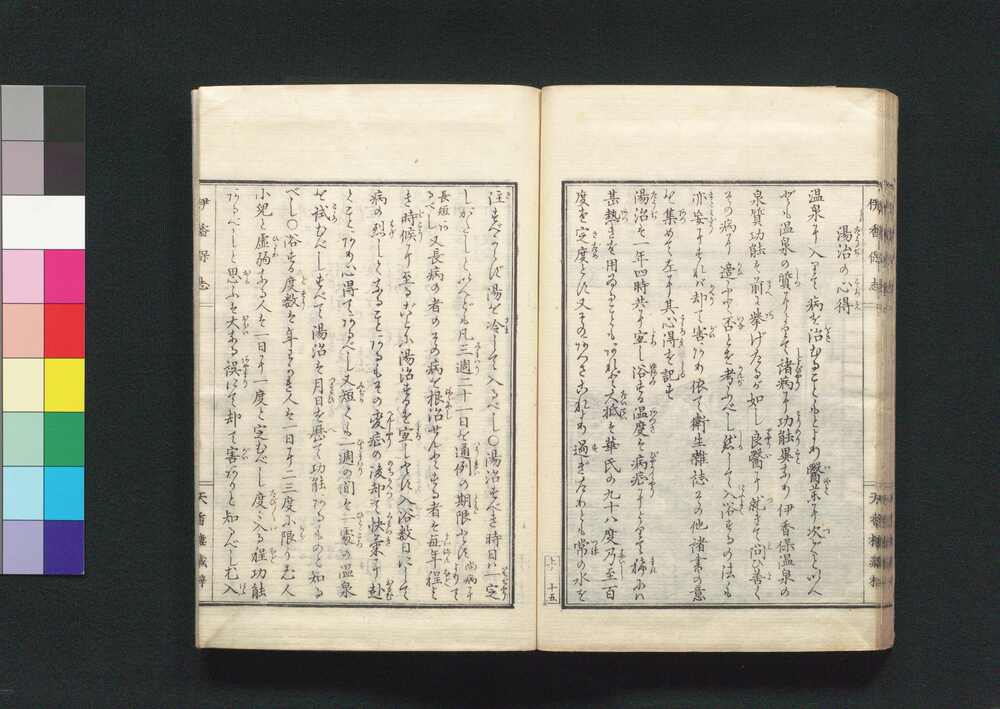 湯治の心得
温泉に入りて病を治むることもとより醫薬に次ぐといへ
ども温泉の質によりて諸病に功能異あり伊香保温泉の
泉質功能は前に挙げたるが如し良醫に就きて問ひ善く
その病に適ふや否とを考ふべし然して入浴するの法も
亦妄にすれば却て害あり依て衛生雑誌その他諸書の意
を集めて左に其心得を記す
湯治は一年四時共に宜し浴する温度は病症によりて稀には
甚熱きを用ゐることもあれど大抵は華氏の九十八度乃至百
度を定度とす又そのあつさこれより過ぎたるときは常の水を
注すべからず湯を冷して入るべし〇湯治すべき時日は一定
しがたしといへども凡三週二十一日を通例の期限とす
尚病によりて長短あるべし
又長病の者のその病を根治せんとする者は毎年程よ
き時候に至るごとに湯治するを宜しとす入浴数日にして
病の烈しくなることあるもその変症の後却て快気に赴
くことあり心得てあるべし又短くも一週の間は一處の温泉
を試むべしすべて湯治は月日を歴て功能あるものと知る
べし〇浴する度数は年わかき人は一日に二三度に限り老人
小児と虚弱なる人は一日に一度と定むべし度々入る程功能
あるべしと思ふは大なる誤にて却て害ありと知るべし尤入
伊香保志
十五